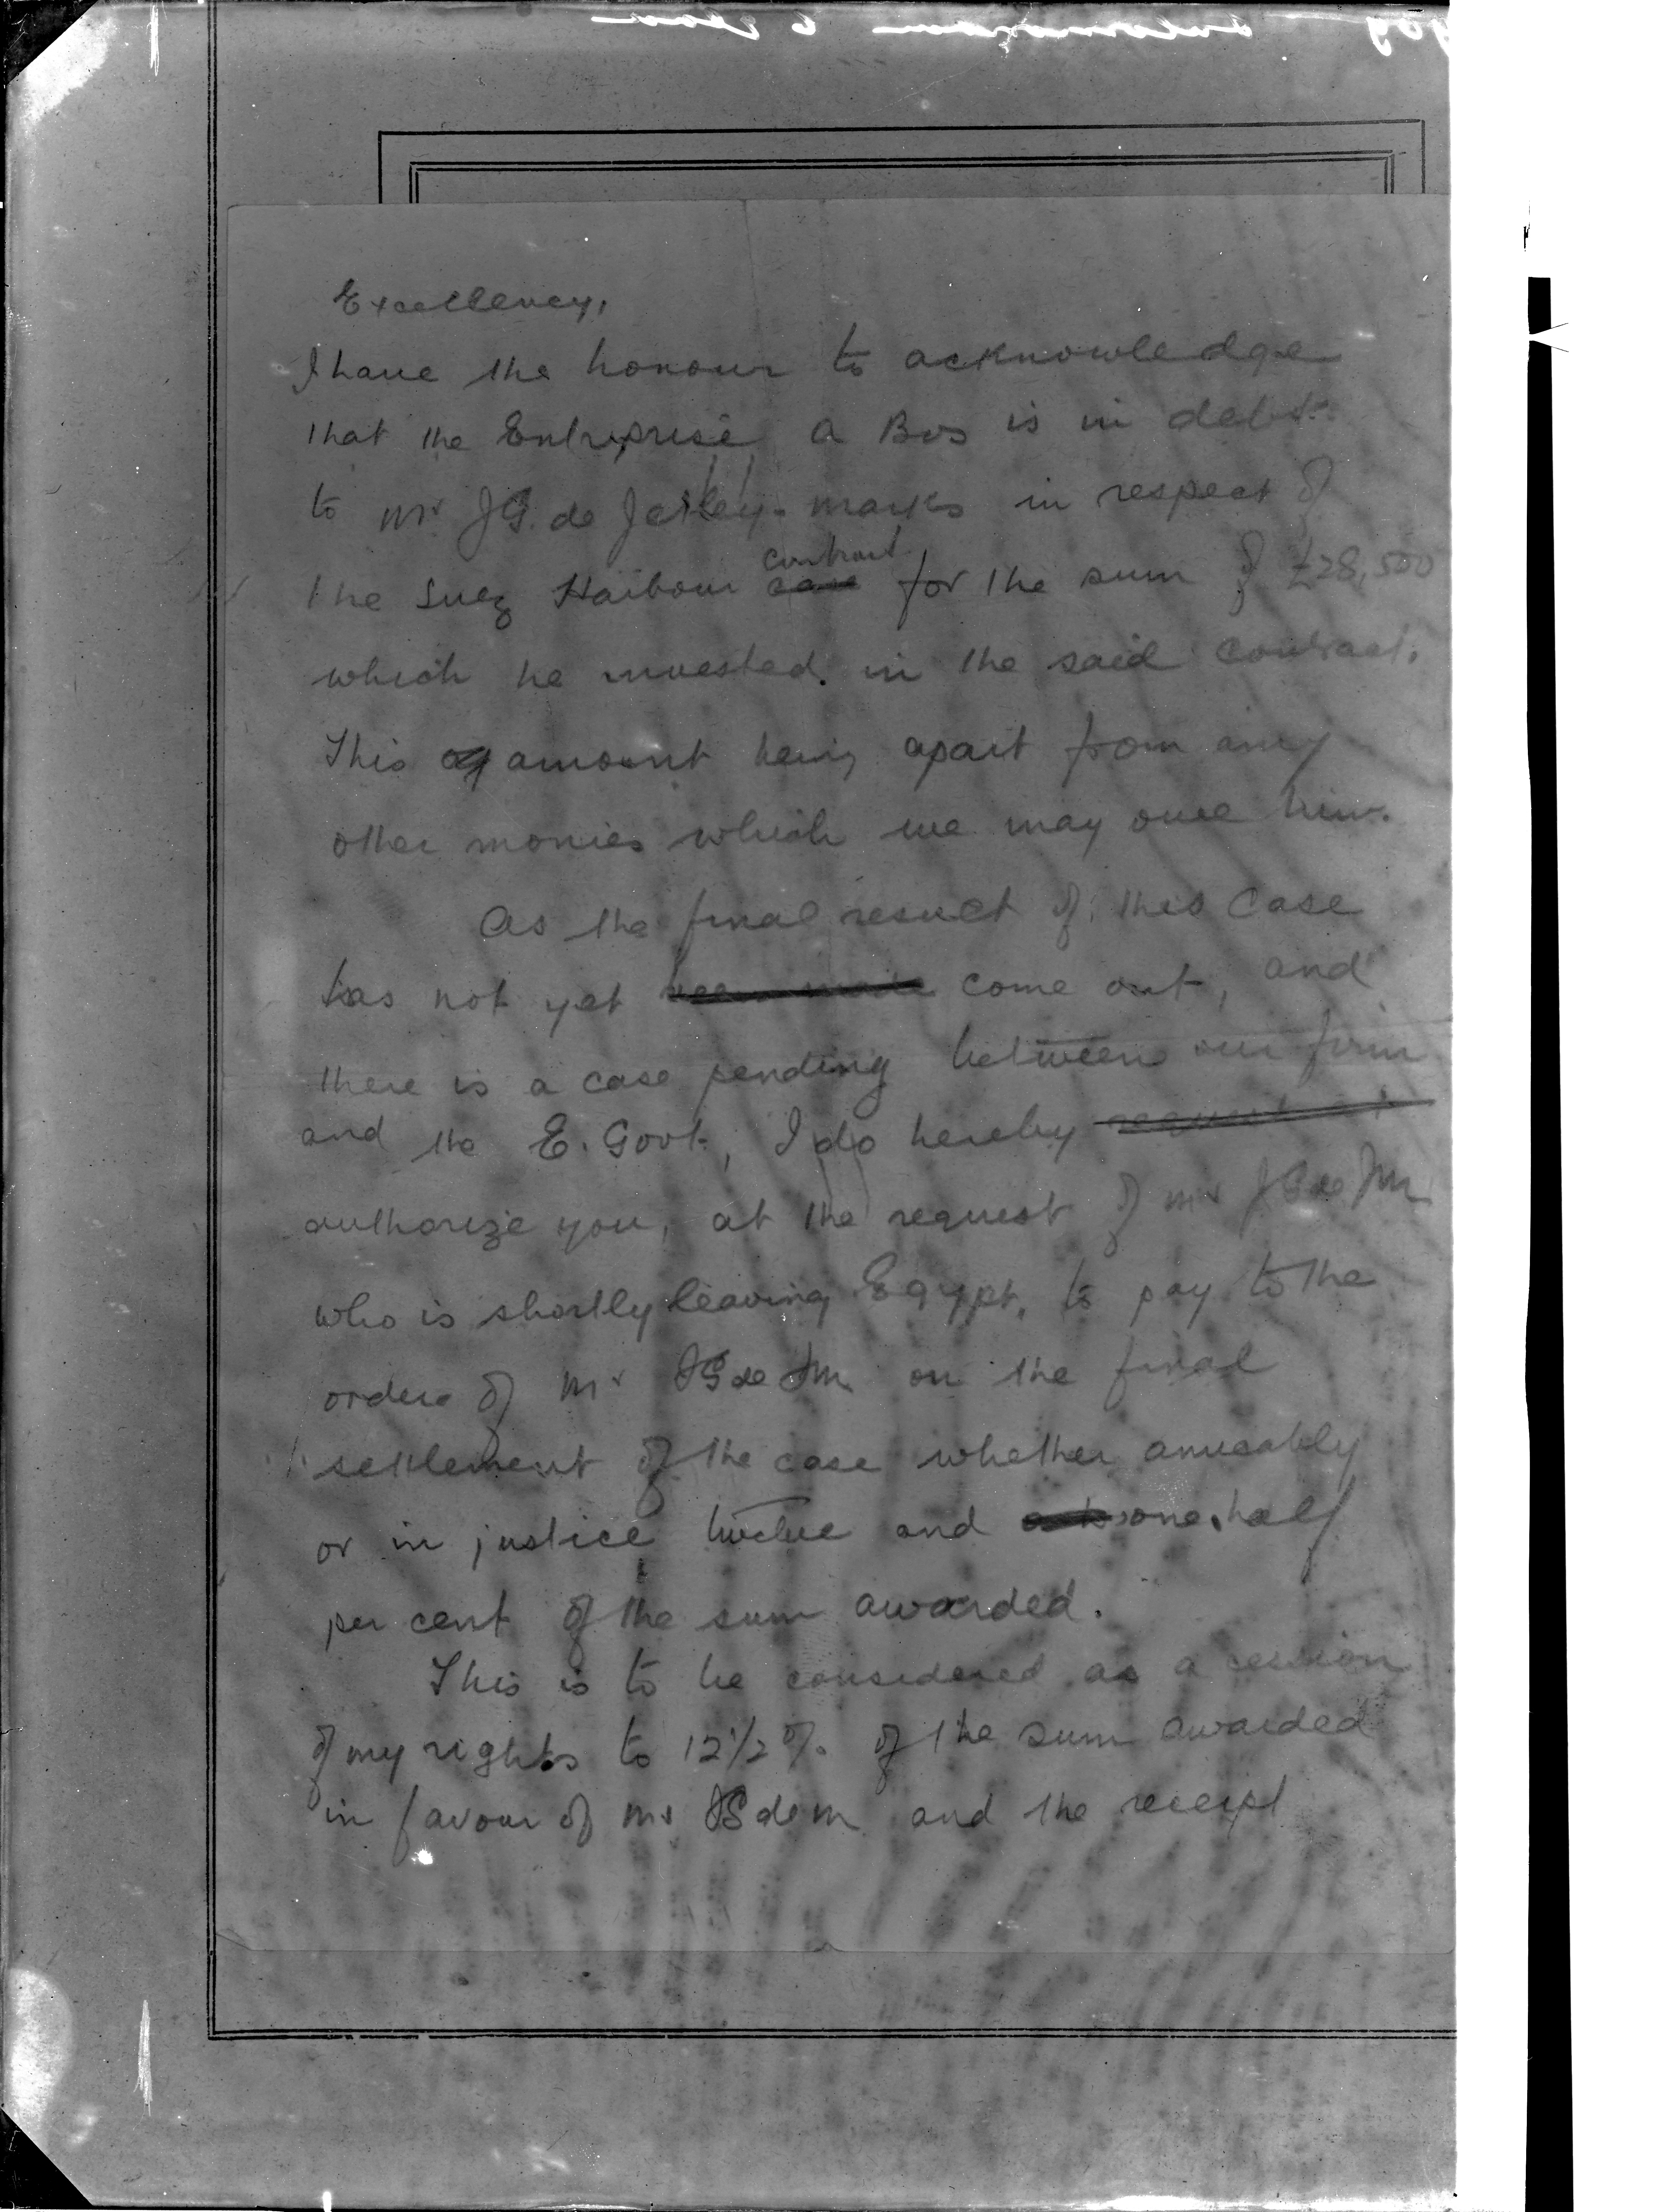 Excellency,
I have the honour to acknowledge
that the Entreprise A Bos is in debt
to Mr J G. de Jerley. marks in respect of
contract
the Suez Harbour case for the sum of £28,500
which he invested. in the said contract.
This amount being apart from any
other monies which we may owe him.
As the final result of this case
has not yet come out, and
there is a case pending between our firm
and the E. Govt., I do hereby request
authorize you, at the request of Mr J G de J M
who is shortly leaving Egypt, to pay to the
order of Mr J G de J M on the final
settlement of the case whether amicably
or in justice twelve and one half
per cent of the sum awarded.
This is to be considered as a cession
of my rights to 12 1/2 % of the sum awarded
in favour of Mr J G de M and the receipt